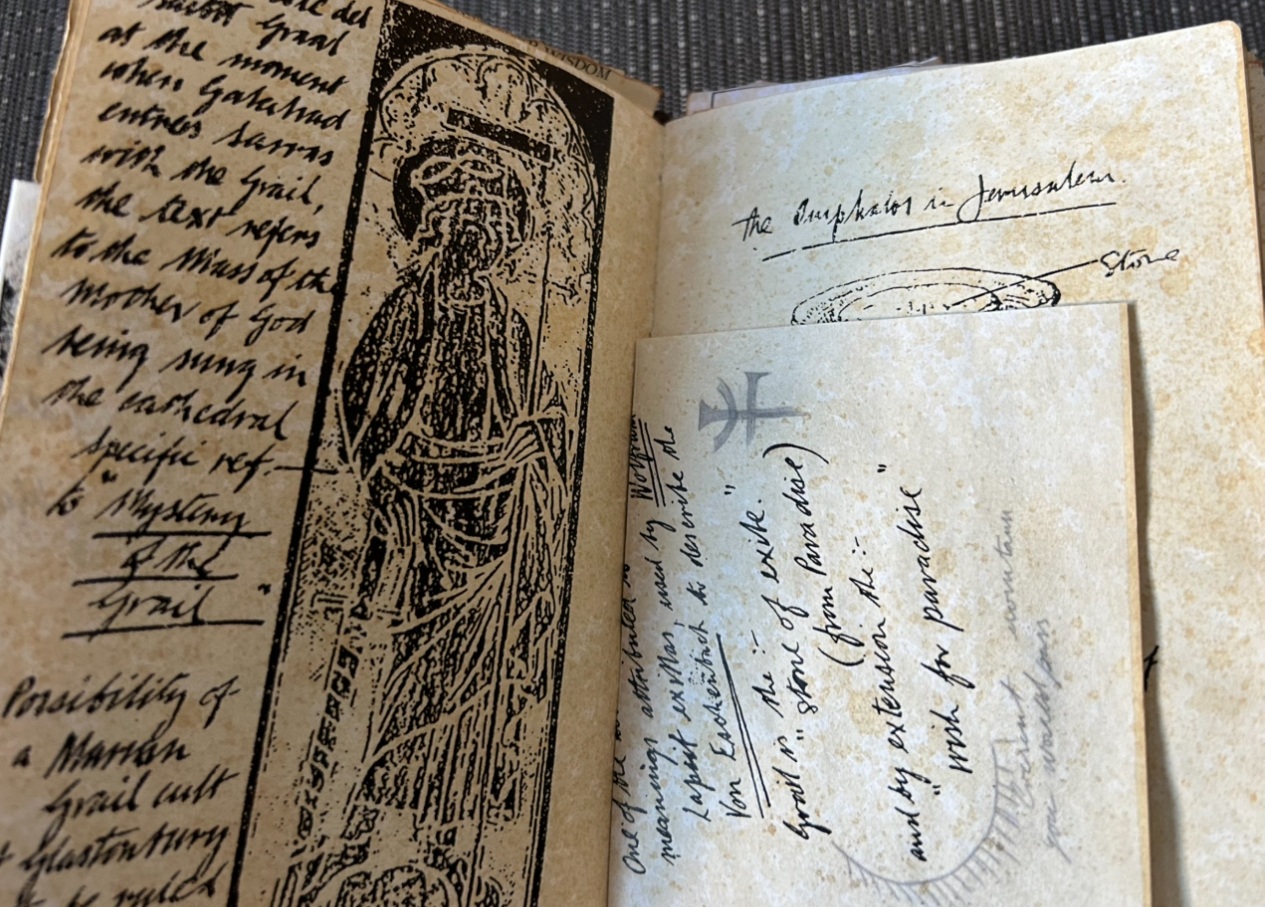 del
Graal
at the moment
when Galahad
enters Sarras
with the Grail,
the text refers
to the Mass of the
Mother of God
being sung in
the cathedral
specific ref.
to "Mystery
of the
Grail"
Possibility of
a Marian
Grail cult
Glastonbury
WISDOM
the Omphalos in Jerusalem.
Stone
One of the attributed to
meanings lapsit exillas, used by Wolfram
Von Eschenbach to describe the
Grail is the :-
"stone of exile."
(from Paradise)
and by extension the :-
"wish for paradise"